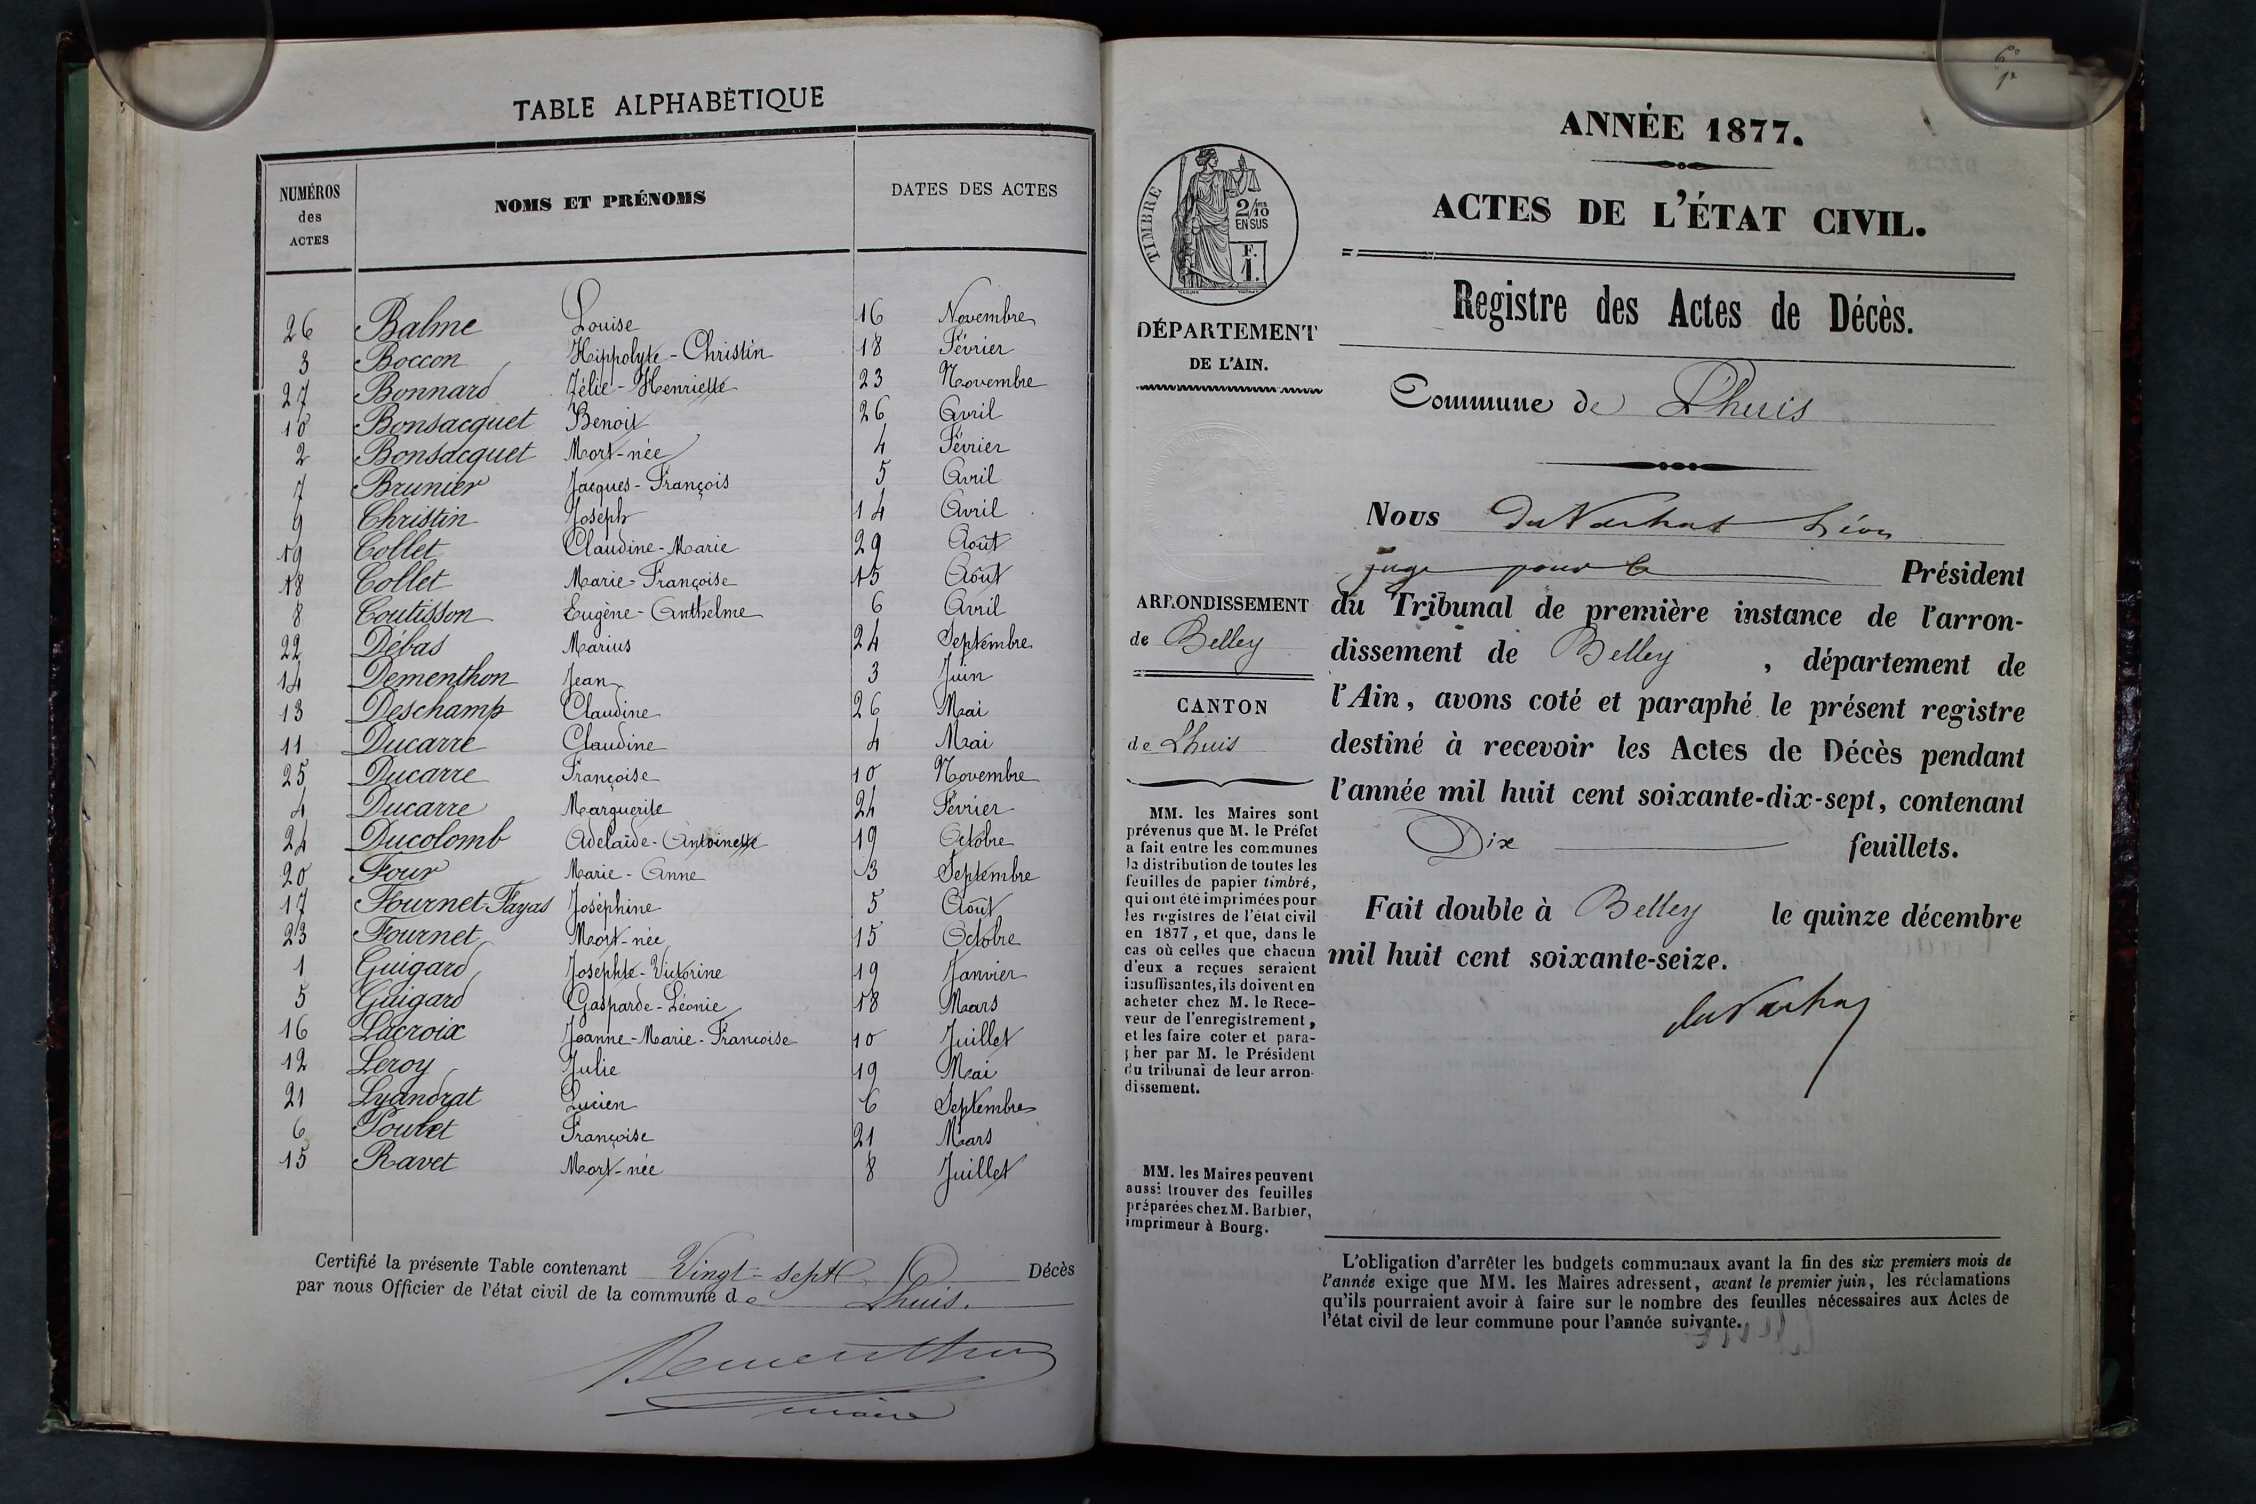 TABLE ALPHABÉTIQUE
NUMÉROS des ACTES NOMS ET PRÉNOMS DATES DES ACTES
26 Balme Louise 16 Novembre
3 Boccon Hippolyte-Christin 18 Février
27 Bonnard Zélie-Henriette 23 Novembre
10 Bonsacquet Benoit 26 Avril
2 Bonsacquet Mort-née 4 Février
7 Brunier Jacques-François 5 Avril
9 Christin Joseph 14 Avril
19 Collet Claudine-Marie 29 Août
18 Collet Marie-Françoise 15 Août
8 Coutisson Eugène-Anthelme 6 Avril
22 Débas Marius 24 Septembre
14 Dementhon Jean 3 Juin
13 Deschamp Claudine 26 Mai
11 Ducarre Claudine 4 Mai
25 Ducarre Françoise 10 Novembre
4 Ducarre Marguerite 24 Février
24 Ducolomb Adelaïde-Antoinette 19 Octobre
20 Four Marie-Anne 3 Septembre
17 Fournet-Fayas Joséphine 5 Août
23 Fournet Mort-née 15 Octobre
1 Guigard Josephte-Victorine 19 Janvier
5 Guigard Gasparde-Léonie 18 Mars
16 Lacroix Jeanne-Marie-Francoise 10 Juillet
12 Leroy Julie 19 Mai
21 Lyandrat Lucien 6 Septembre
6 Poulet Françoise 21 Mars
15 Ravet Mort-née 8 Juillet
Certifié la présente Table contenant Vingt-sept Décès
par nous Officier de l'état civil de la commune de Lhuis.
Dementhon
maire
TIMBRE
2/10
EN SUS
F.
1.
DÉPARTEMENT
DE L'AIN.
ARRONDISSEMENT
de Belley
CANTON
de Lhuis
MM. les Maires sont
prévenus que M. le Préfet
a fait entre les communes
la distribution de toutes les
feuilles de papier timbré,
qui ont été imprimées pour
les registres de l'état civil
en 1877, et que, dans le
cas où celles que chacun
d'eux a reçues seraient
insuffisantes, ils doivent en
acheter chez M. le Rece-
veur de l'enregistrement,
et les faire coter et para-
pher par M. le Président
du tribunal de leur arron-
dissement.
MM. les Maires peuvent
aussi trouver des feuilles
préparées chez M. Barbier,
imprimeur à Bourg.
ANNÉE 1877.
ACTES DE L'ÉTAT CIVIL.
Registre des Actes de Décès.
Commune de Lhuis
Nous Du Vachat Léon
juge pour le Président
du Tribunal de première instance de l'arron-
dissement de Belley, département de
l'Ain, avons coté et paraphé le présent registre
destiné à recevoir les Actes de Décès pendant
l'année mil huit cent soixante-dix-sept, contenant
Dix feuillets.
Fait double à Belley le quinze décembre
mil huit cent soixante-seize.
du Vachat
L'obligation d'arrêter les budgets communaux avant la fin des six premiers mois de
l'année exige que MM. les Maires adressent, avant le premier juin, les réclamations
qu'ils pourraient avoir à faire sur le nombre des feuilles nécessaires aux Actes de
l'état civil de leur commune pour l'année suivante.